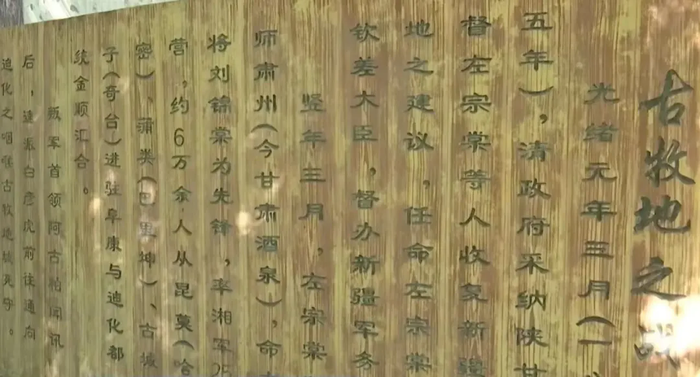 古牧地之战
光绪元年三月(一
五年),清政府采纳陕甘
督左宗棠等人收复新疆
地之建议,任命左宗棠
钦差大臣,督办新疆军务
翌年三月,左宗棠
师肃州(今甘肃酒泉),命
将刘锦棠为先锋,率湘军25
营,约6万余人从昆莫(哈
密)、蒲类(巴里坤)、古城
子(奇台)进驻阜康与迪化都
统金顺汇合。
叛军首领阿古柏闻讯
后,遣派白彦虎前往通向
迪化之咽喉古牧地镇死守。